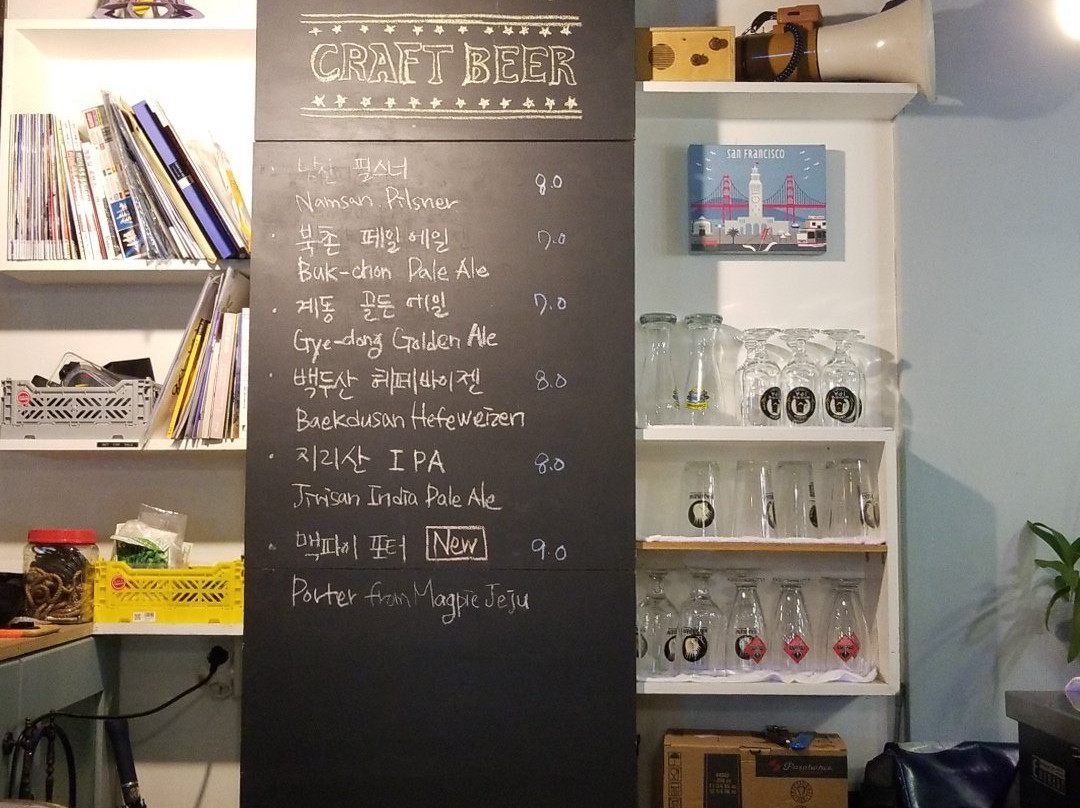 CRAFT BEER
남산 필스너 8.0
Namsan Pilsner
북촌 페일에일 7.0
Buk-chon Pale Ale
계동 골든 에일 7.0
Gye-dong Golden Ale
백두산 헤페바이젠 8.0
Baekdusan Hefeweizen
지리산 IPA 8.0
Jirisan India Pale Ale
맥파이 포터 New 9.0
Porter from Magpie Jeju
SAN FRANCISCO